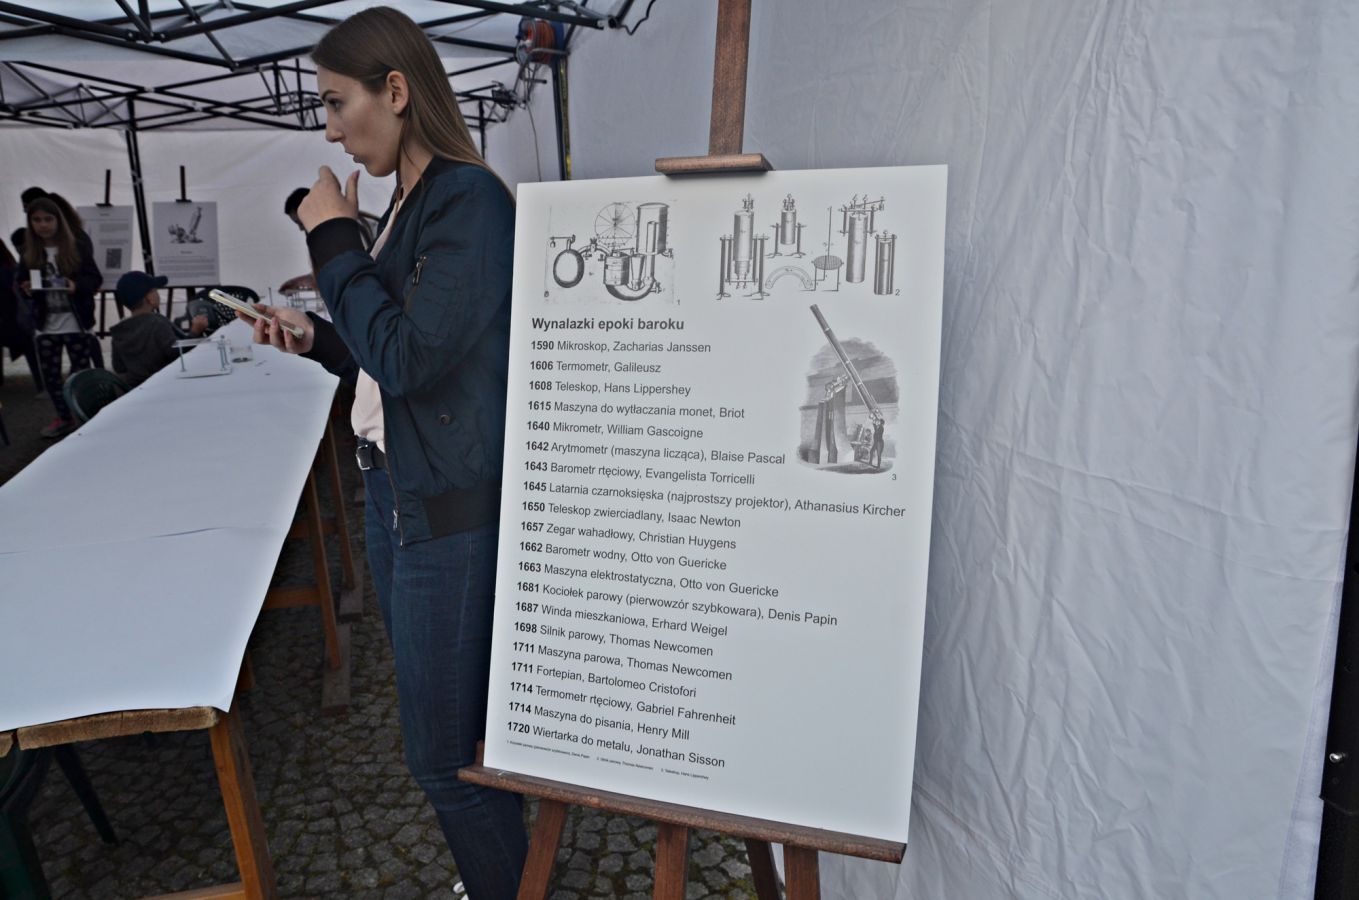 1
2
Wynalazki epoki baroku
1590 Mikroskop, Zacharias Janssen
1606 Termometr, Galileusz
1608 Teleskop, Hans Lippershey
1615 Maszyna do wytłaczania monet, Briot
1640 Mikrometr, William Gascoigne
1642 Arytmometr (maszyna licząca), Blaise Pascal
1643 Barometr rtęciowy, Evangelista Torricelli
3
1645 Latarnia czarnoksięska (najprostszy projektor), Athanasius Kircher
1650 Teleskop zwierciadlany, Isaac Newton
1657 Zegar wahadłowy, Christian Huygens
1662 Barometr wodny, Otto von Guericke
1663 Maszyna elektrostatyczna, Otto von Guericke
1681 Kociołek parowy (pierwowzór szybkowara), Denis Papin
1687 Winda mieszkaniowa, Erhard Weigel
1698 Silnik parowy, Thomas Newcomen
1711 Maszyna parowa, Thomas Newcomen
1711 Fortepian, Bartolomeo Cristofori
1714 Termometr rtęciowy, Gabriel Fahrenheit
1714 Maszyna do pisania, Henry Mill
1720 Wiertarka do metalu, Jonathan Sisson
1. Kociołek parowy (pierwowzór szybkowara), Denis Papin 2. Silnik parowy, Thomas Newcomen 3. Teleskop, Hans Lippershey